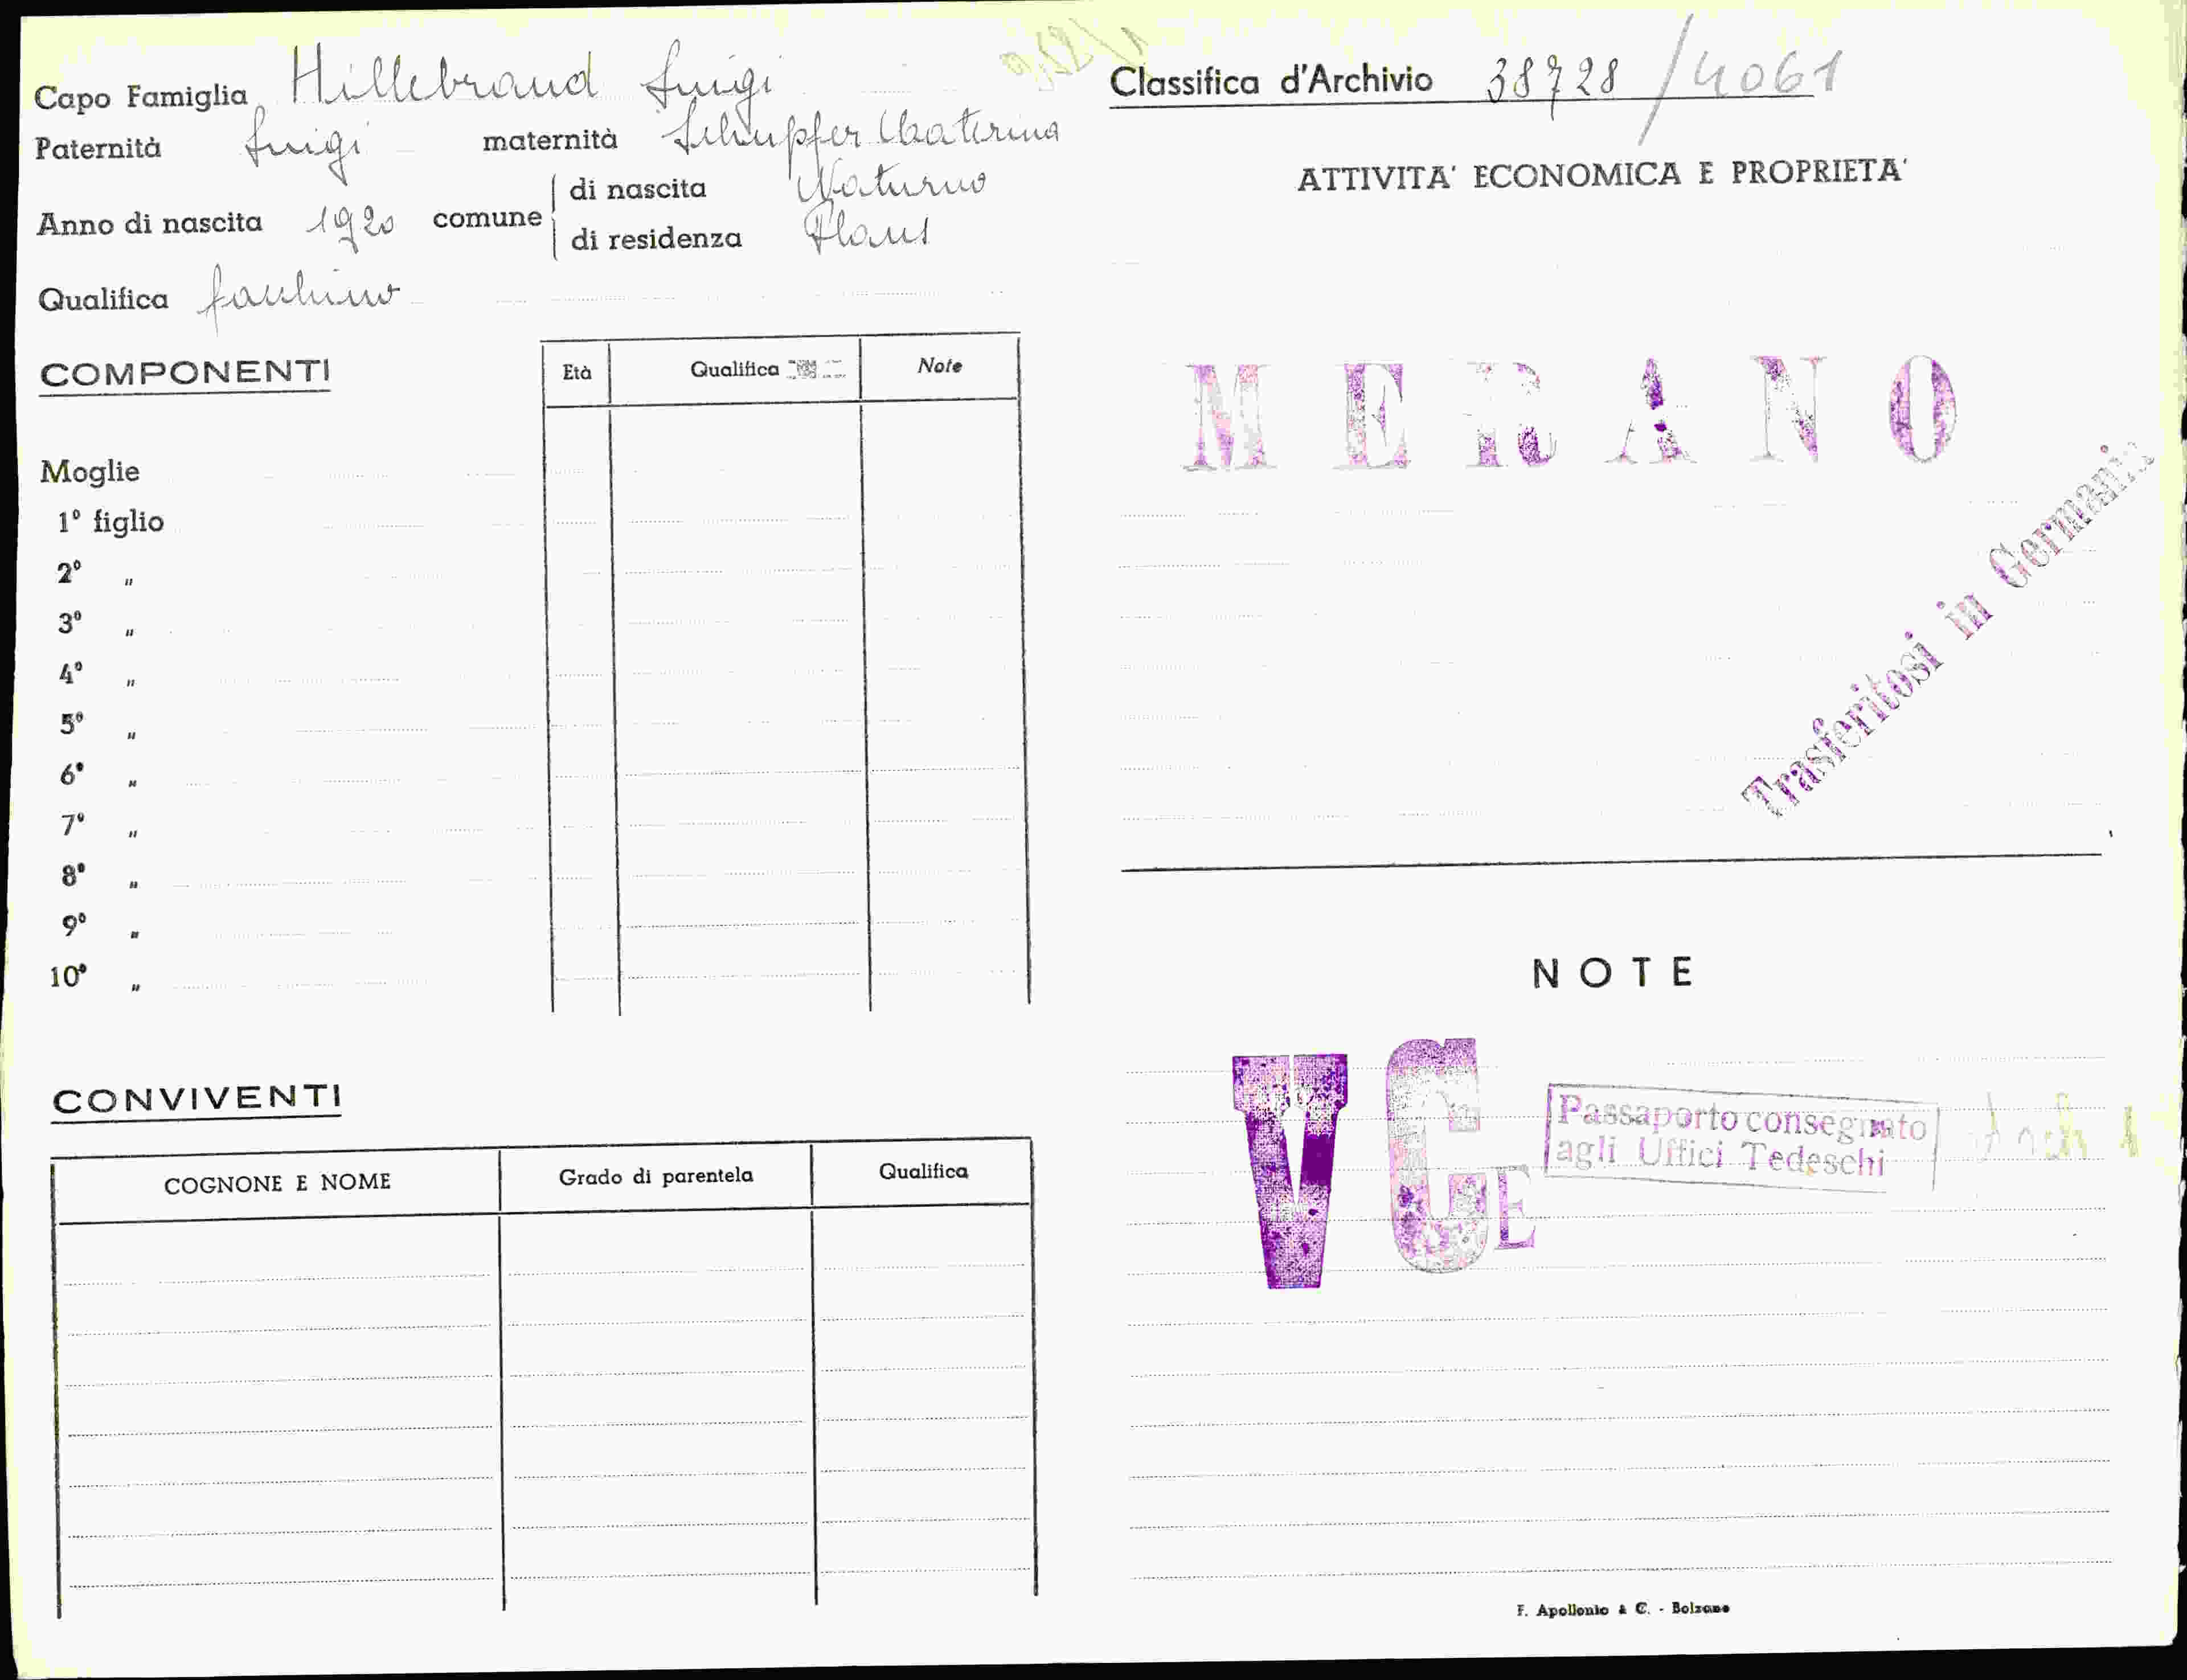 Capo Famiglia Hillebrand Luigi
Paternità Luigi maternità Schupfer Caterina
Anno di nascita 1920 comune di nascita Naturno
di residenza Plaus
Qualifica facchino
COMPONENTI
Età Qualifica Note
Moglie
1º figlio
2º "
3º "
4º "
5º "
6º "
7º "
8º "
9º "
10º "
CONVIVENTI
COGNONE E NOME Grado di parentela Qualifica
Classifica d'Archivio 38728/4061
ATTIVITA' ECONOMICA E PROPRIETA'
MERANO
Trasferitosi in Germania
NOTE
VCE
Passaporto consegnato
agli Uffici Tedeschi
F. Apollonio & C. - Bolzano